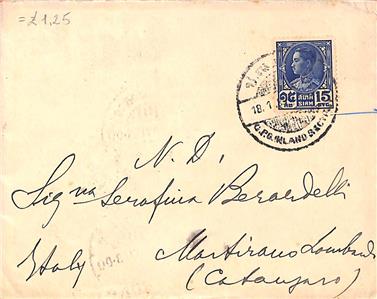 = £1,25
๑๕ สยาม 15
SIAM
18.1
G.P.O. INLAND SECTION
N.D.
Sig.na Serafina Berardelli
Martirano Lombardo
Italy
(Catanzaro)